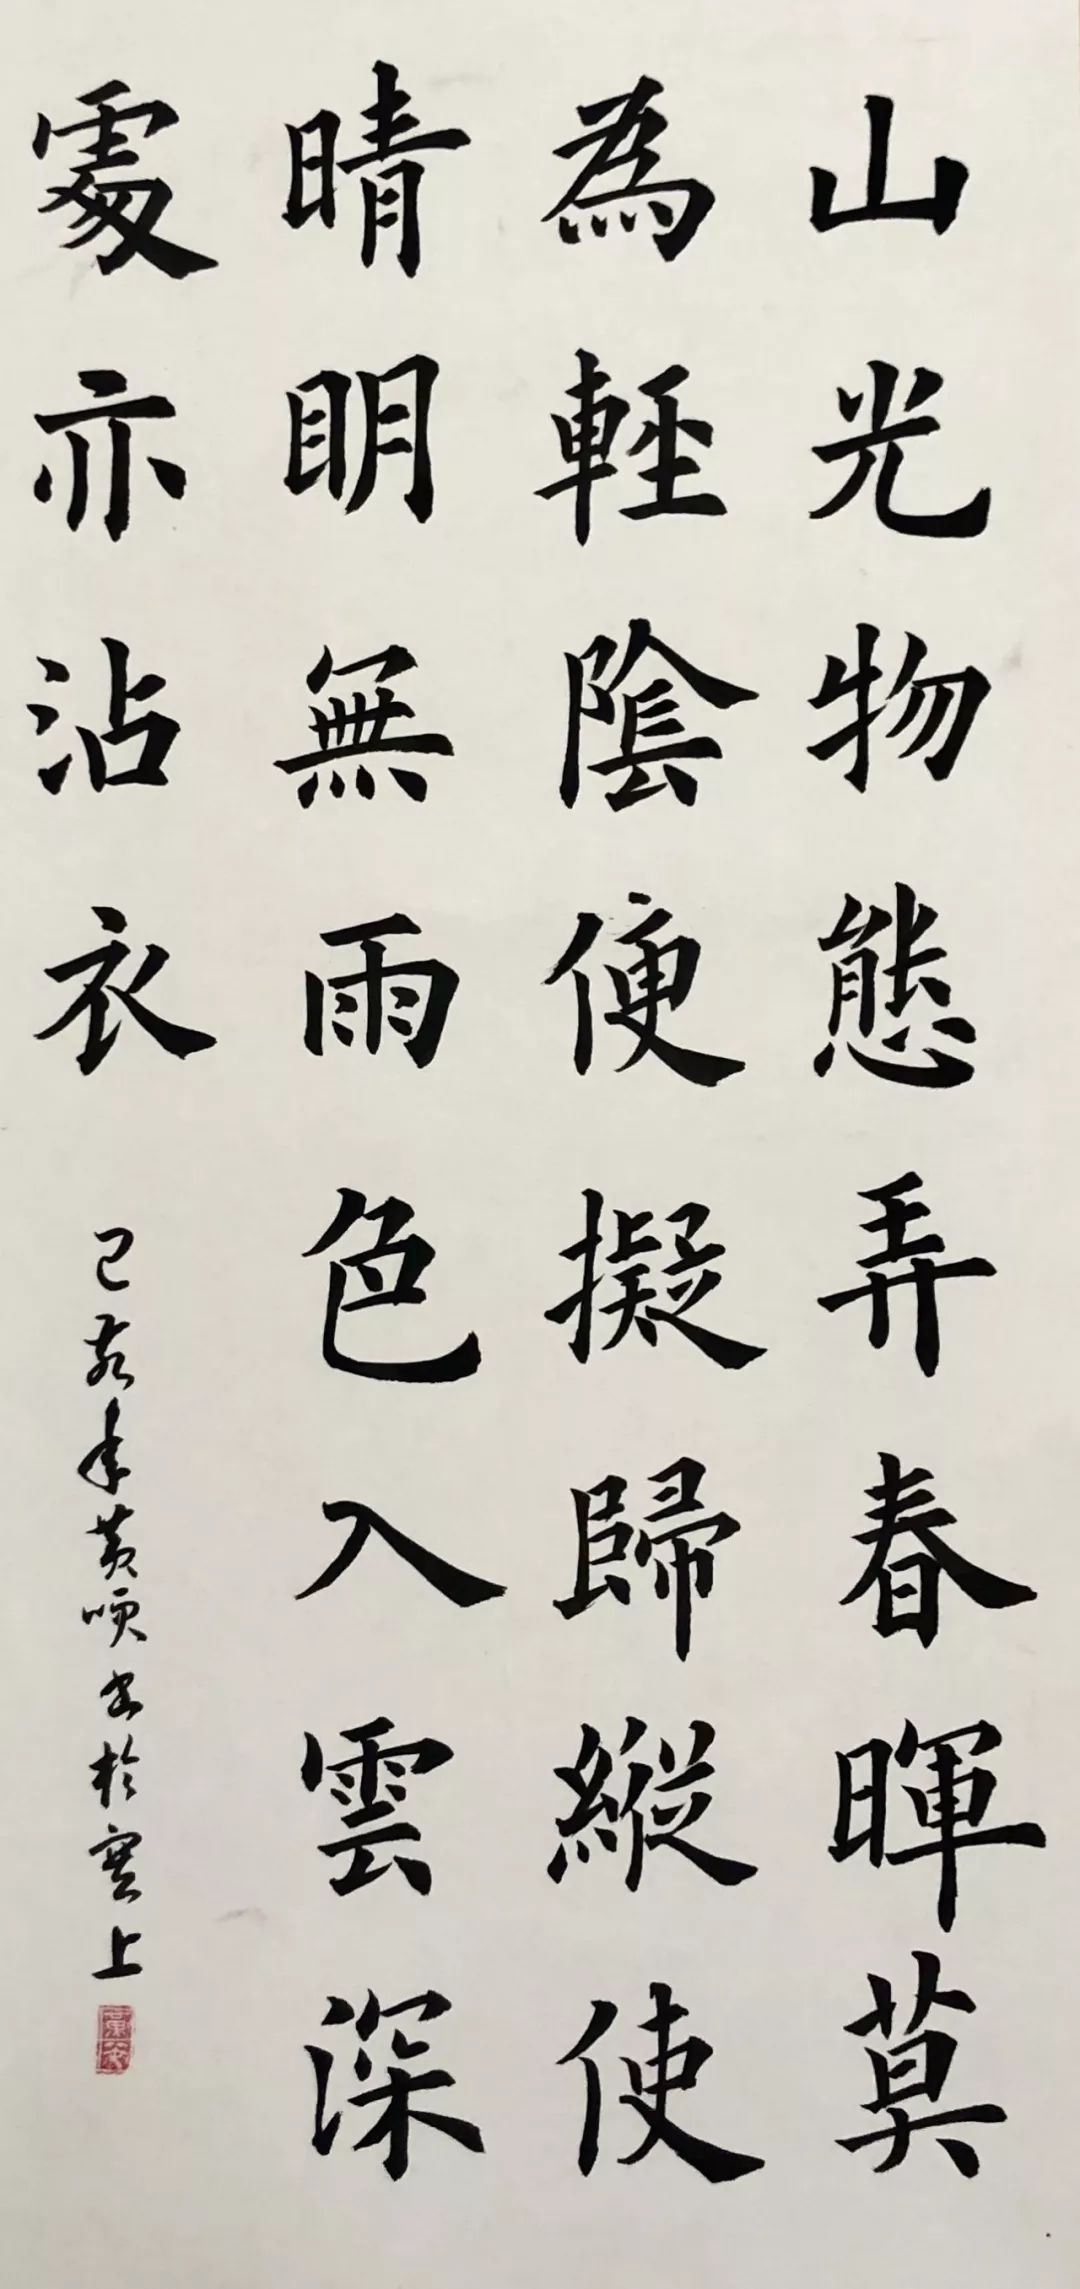 山光物態弄春暉莫
為輕陰便擬歸縱使
晴明無雨色入雲深
處亦沾衣
己亥年黃噢书於雲上